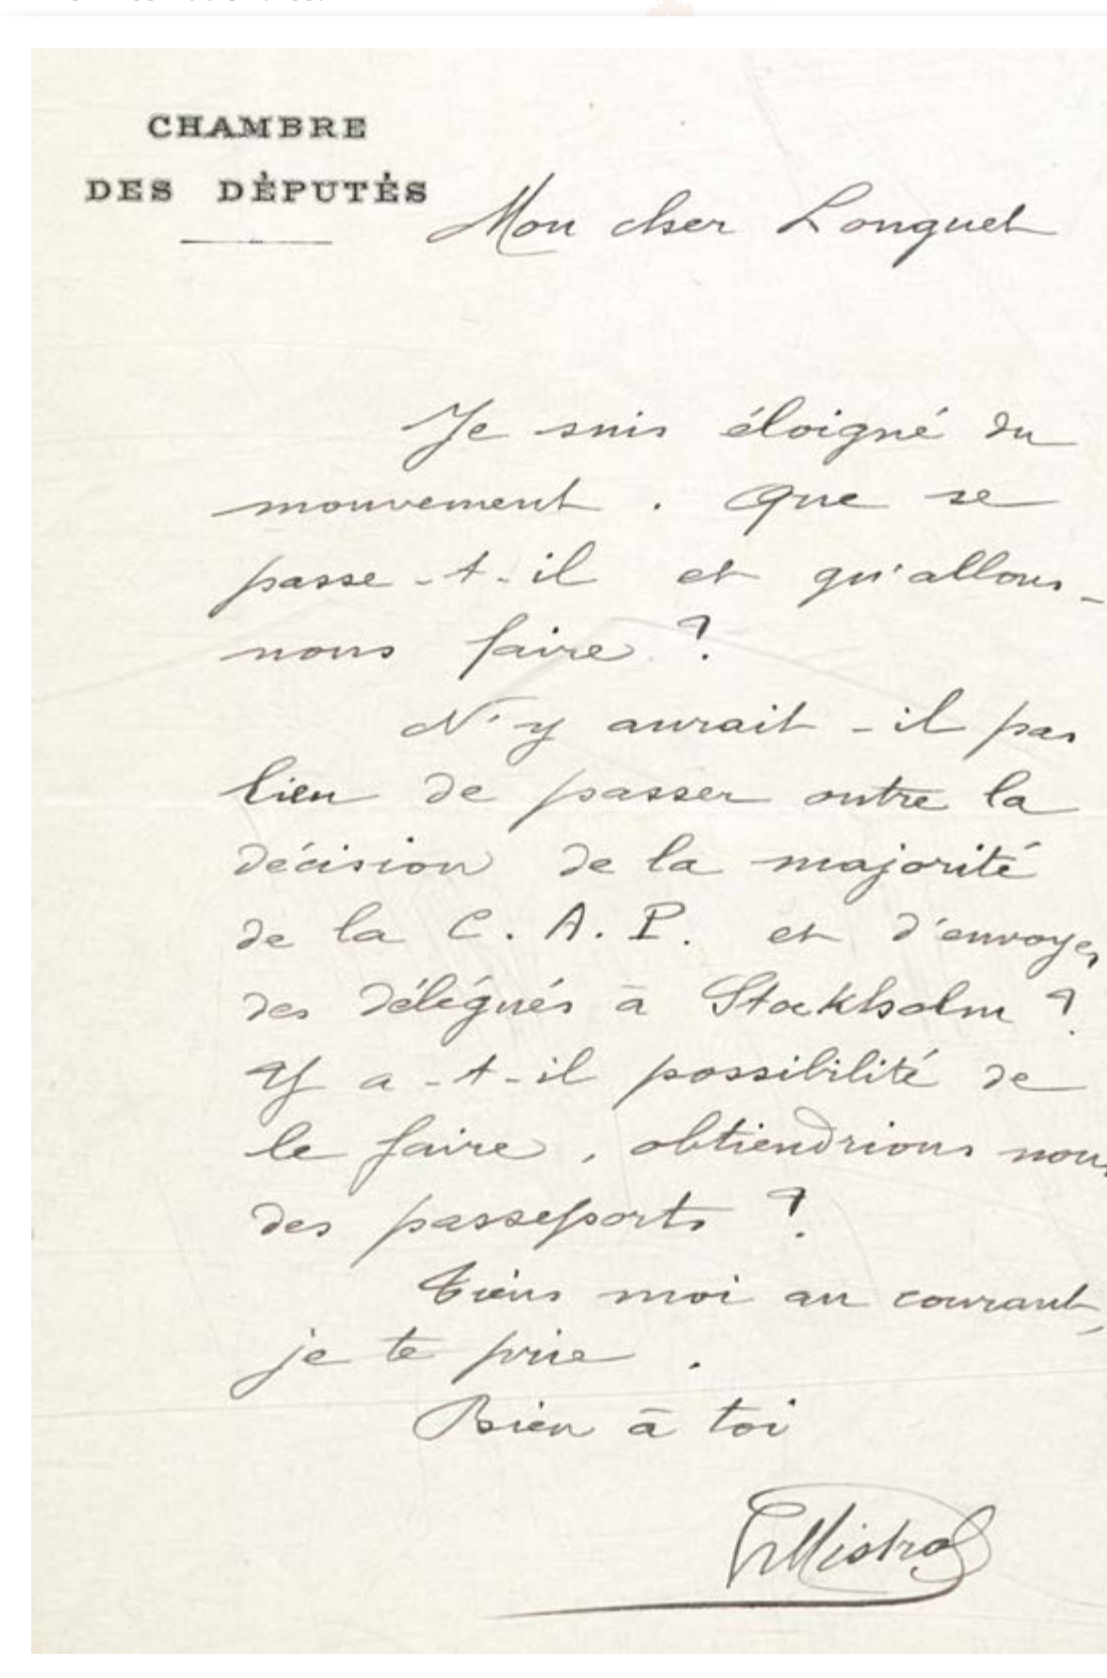 CHAMBRE
DES DÉPUTÉS
Mon cher Longuet
Je suis éloigné du
mouvement. Que se
passe-t-il et qu'allons-
nous faire ?
N'y aurait-il pas
lieu de passer outre la
décision de la majorité
de la C. A. P. et d'envoyer
des délégués à Stockholm ?
Y a-t-il possibilité de
le faire, obtiendrions nous
des passeports ?
Tiens moi au courant,
je te prie.
Bien à toi
Mistral